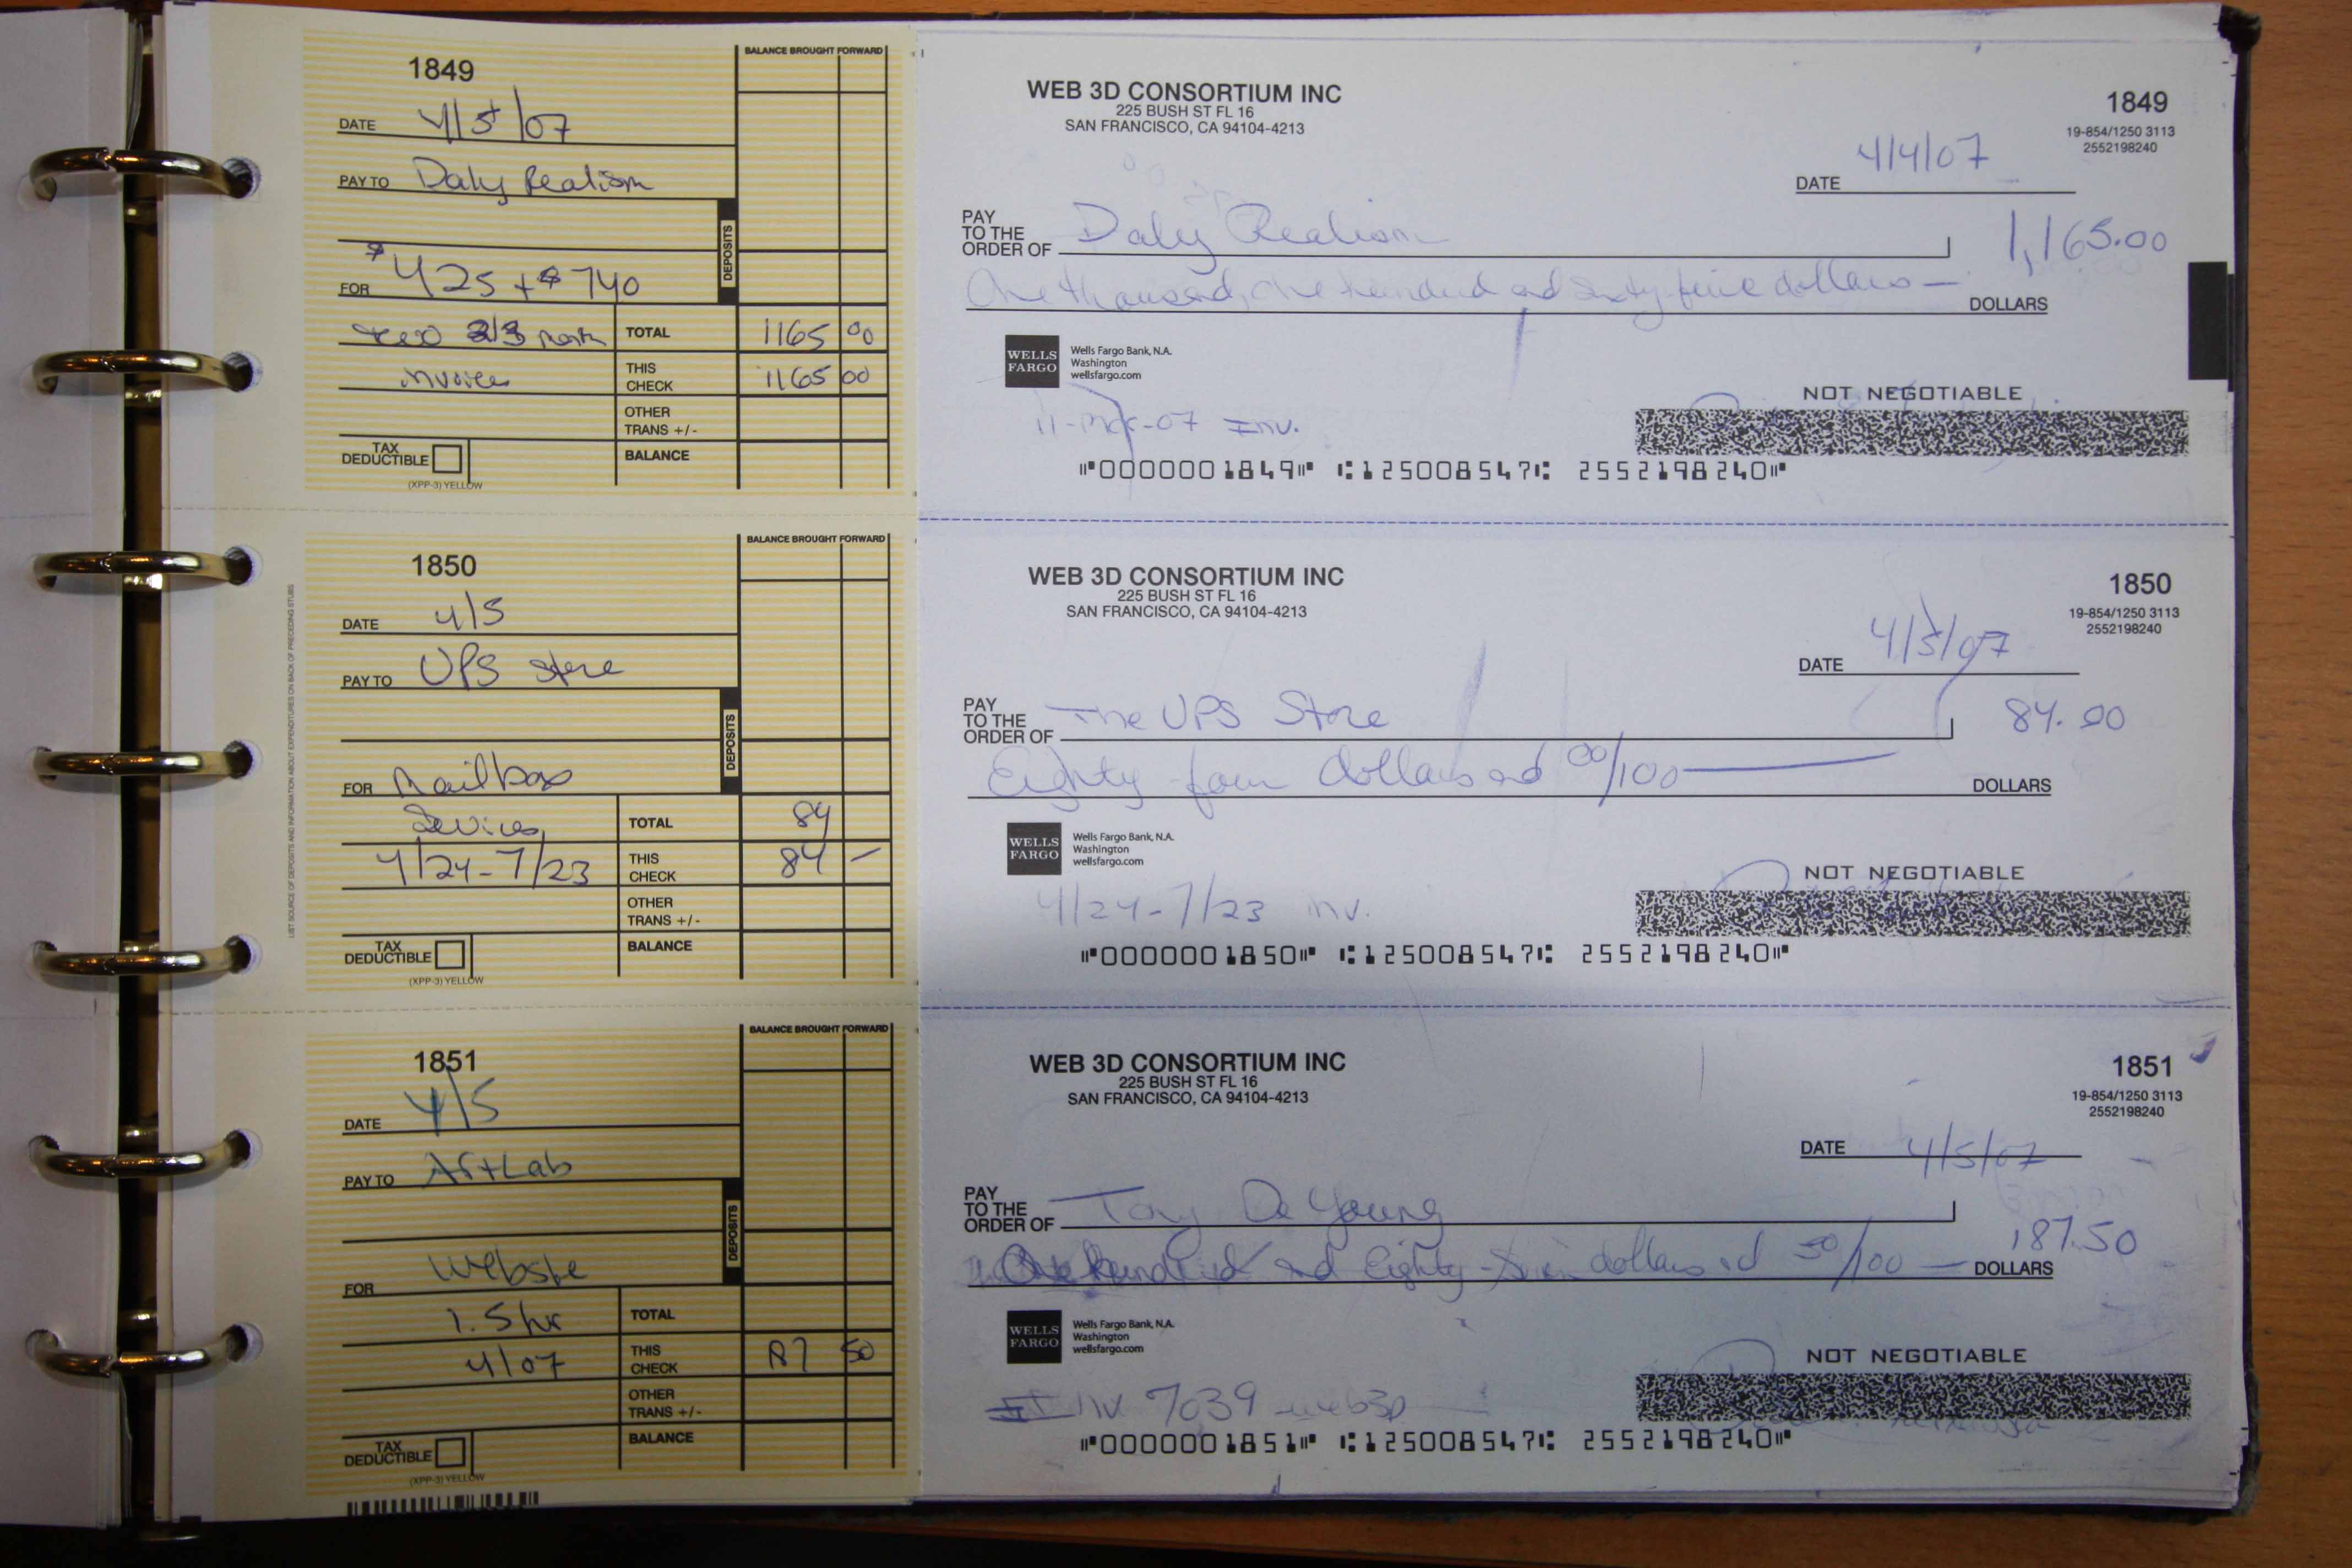 1849
BALANCE BROUGHT FORWARD
DATE 4/5/07
PAY TO Daly Realism
DEPOSITS
FOR $425 + $740
2/3 month TOTAL 1165 00
invoice THIS CHECK 1165 00
OTHER TRANS +/-
TAX DEDUCTIBLE BALANCE
(XPP-3) YELLOW
WEB 3D CONSORTIUM INC
225 BUSH ST FL 16
SAN FRANCISCO, CA 94104-4213
1849
19-854/1250 3113
2552198240
DATE 4/4/07
PAY TO THE ORDER OF Daly Realism 1,165.00
One thousand, one hundred and sixty-five dollars — DOLLARS
WELLS FARGO
Wells Fargo Bank, N.A.
Washington
wellsfargo.com
NOT NEGOTIABLE
07 Inv.
⑈0000001849⑈ ⑆125008547⑆ 2552198240⑈
LIST SOURCE OF DEPOSITS AND INFORMATION ABOUT EXPENDITURES ON BACK OF PRECEDING STUBS
1850
BALANCE BROUGHT FORWARD
DATE 4/5
PAY TO UPS Store
DEPOSITS
FOR Mailbox
Services TOTAL 84
4/24-7/23 THIS CHECK 84 –
OTHER TRANS +/-
TAX DEDUCTIBLE BALANCE
(XPP-3) YELLOW
WEB 3D CONSORTIUM INC
225 BUSH ST FL 16
SAN FRANCISCO, CA 94104-4213
1850
19-854/1250 3113
2552198240
DATE 4/5/07
PAY TO THE ORDER OF The UPS Store 84.00
Eighty-four dollars and 00/100 — DOLLARS
WELLS FARGO
Wells Fargo Bank, N.A.
Washington
wellsfargo.com
NOT NEGOTIABLE
4/24-7/23 inv.
⑈0000001850⑈ ⑆125008547⑆ 2552198240⑈
1851
BALANCE BROUGHT FORWARD
DATE 4/5
PAY TO ArtLab
DEPOSITS
FOR Website
1.5 hr TOTAL
4/07 THIS CHECK 87 50
OTHER TRANS +/-
TAX DEDUCTIBLE BALANCE
(XPP-3) YELLOW
WEB 3D CONSORTIUM INC
225 BUSH ST FL 16
SAN FRANCISCO, CA 94104-4213
1851
19-854/1250 3113
2552198240
DATE 4/5/07
PAY TO THE ORDER OF Tony DeYoung 187.50
One hundred and Eighty-seven dollars and 50/100 — DOLLARS
WELLS FARGO
Wells Fargo Bank, N.A.
Washington
wellsfargo.com
NOT NEGOTIABLE
Inv 7039 web3D
⑈0000001851⑈ ⑆125008547⑆ 2552198240⑈